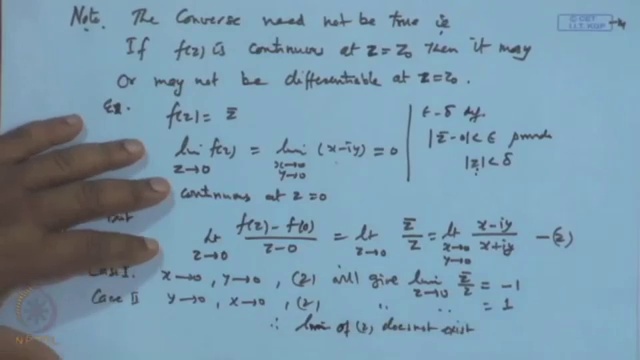 Note. The Converse need not be true ie
If f(z) is continuous at z=z₀ then it may
Or may not be differentiable at z=z₀.
Ex. f(z) = z̄
lim_{z→0} f(z) = lim_{x→0, y→0} (x-iy) = 0
ε-δ def.
|z̄-0|<ε provide
|z|<δ
continuous at z=0
lt_{z→0} (f(z)-f(0))/(z-0) = lt_{z→0} z̄/z = lt_{x→0, y→0} (x-iy)/(x+iy) —(2)
Case I. x→0, y→0, (2) will give lim_{z→0} z̄/z = -1
Case II y→0, x→0, (2) " " = 1
∴ limit of (2) does not exist
NPTEL